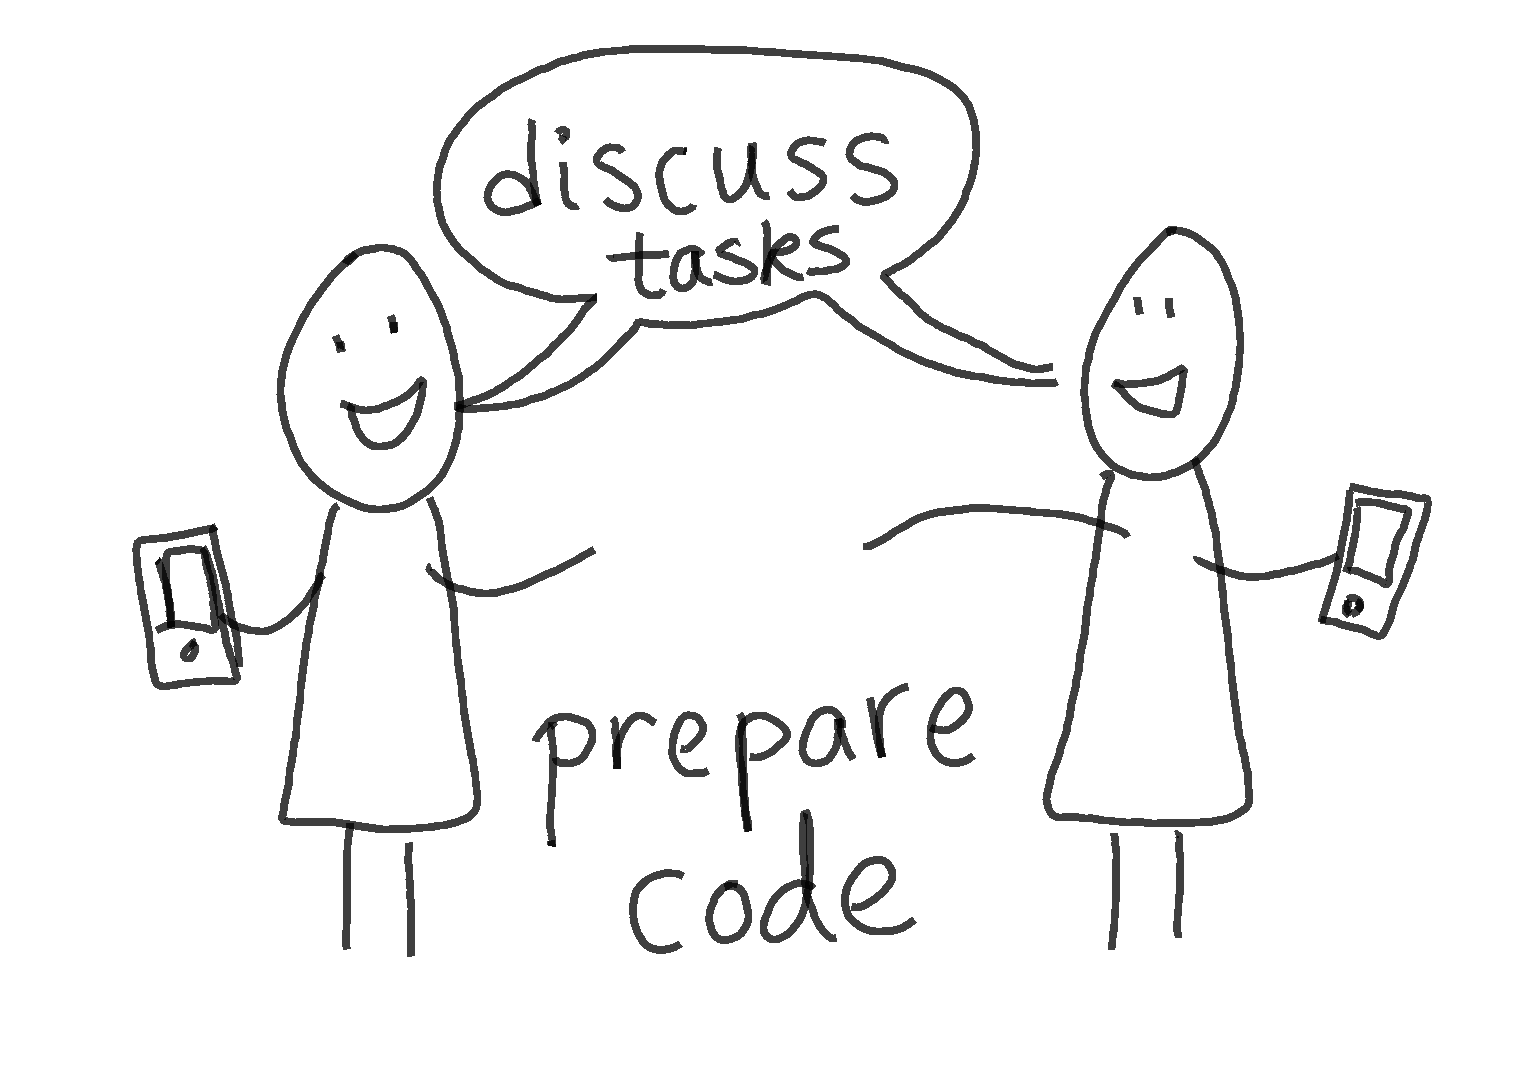 discuss
tasks
prepare
code